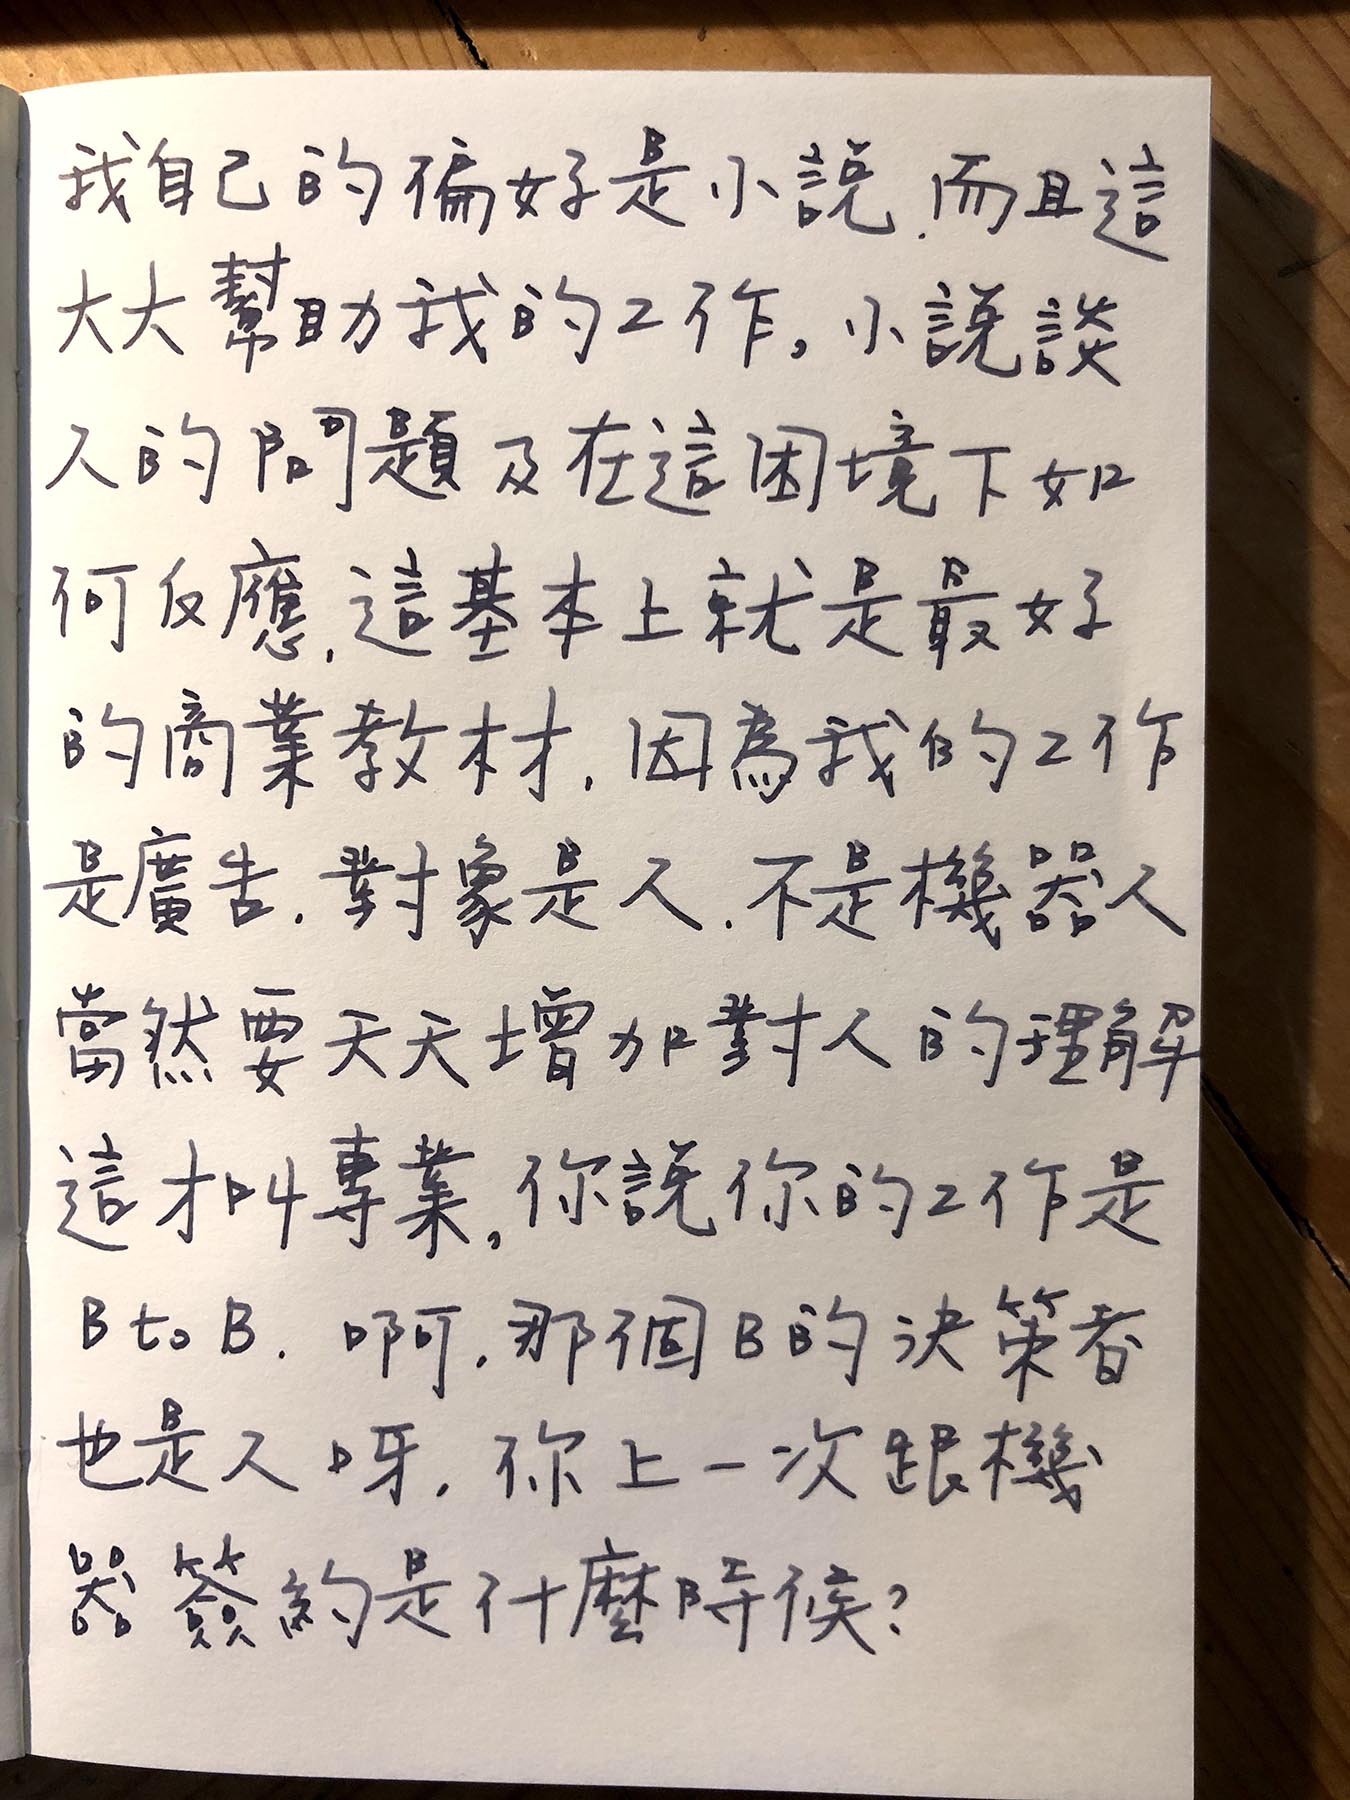 我自己的偏好是小說,而且這
大大幫助我的工作。小說談
人的問題及在這困境下如
何反應,這基本上就是最好
的商業教材,因為我的工作
是廣告,對象是人,不是機器人
當然要天天增加對人的理解
這才叫專業。你說你的工作是
B to B,啊,那個B的決策者
也是人呀,你上一次跟機
器簽約是什麼時候?